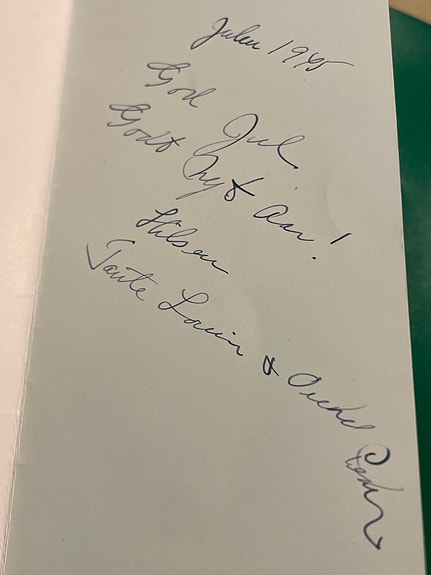 Julen 1945
God Jul
Godt Nytt Aar!
Hilsen
Tante Louise & Onkel Peder